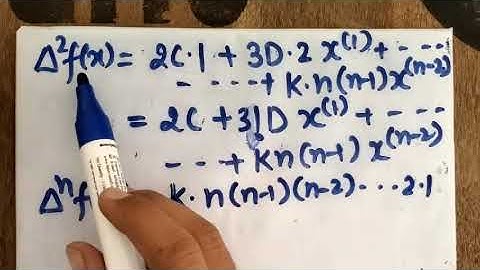 Δ²f(x) = 2C·1 + 3D·2 x⁽¹⁾ + - ---
- ---- + K·n(n-1)x⁽ⁿ⁻²⁾
= 2C + 3!D x⁽¹⁾ + - --
-- - + Kn(n-1) x⁽ⁿ⁻²⁾
Δⁿf K·n(n-1)(n-2)- - · 2·1